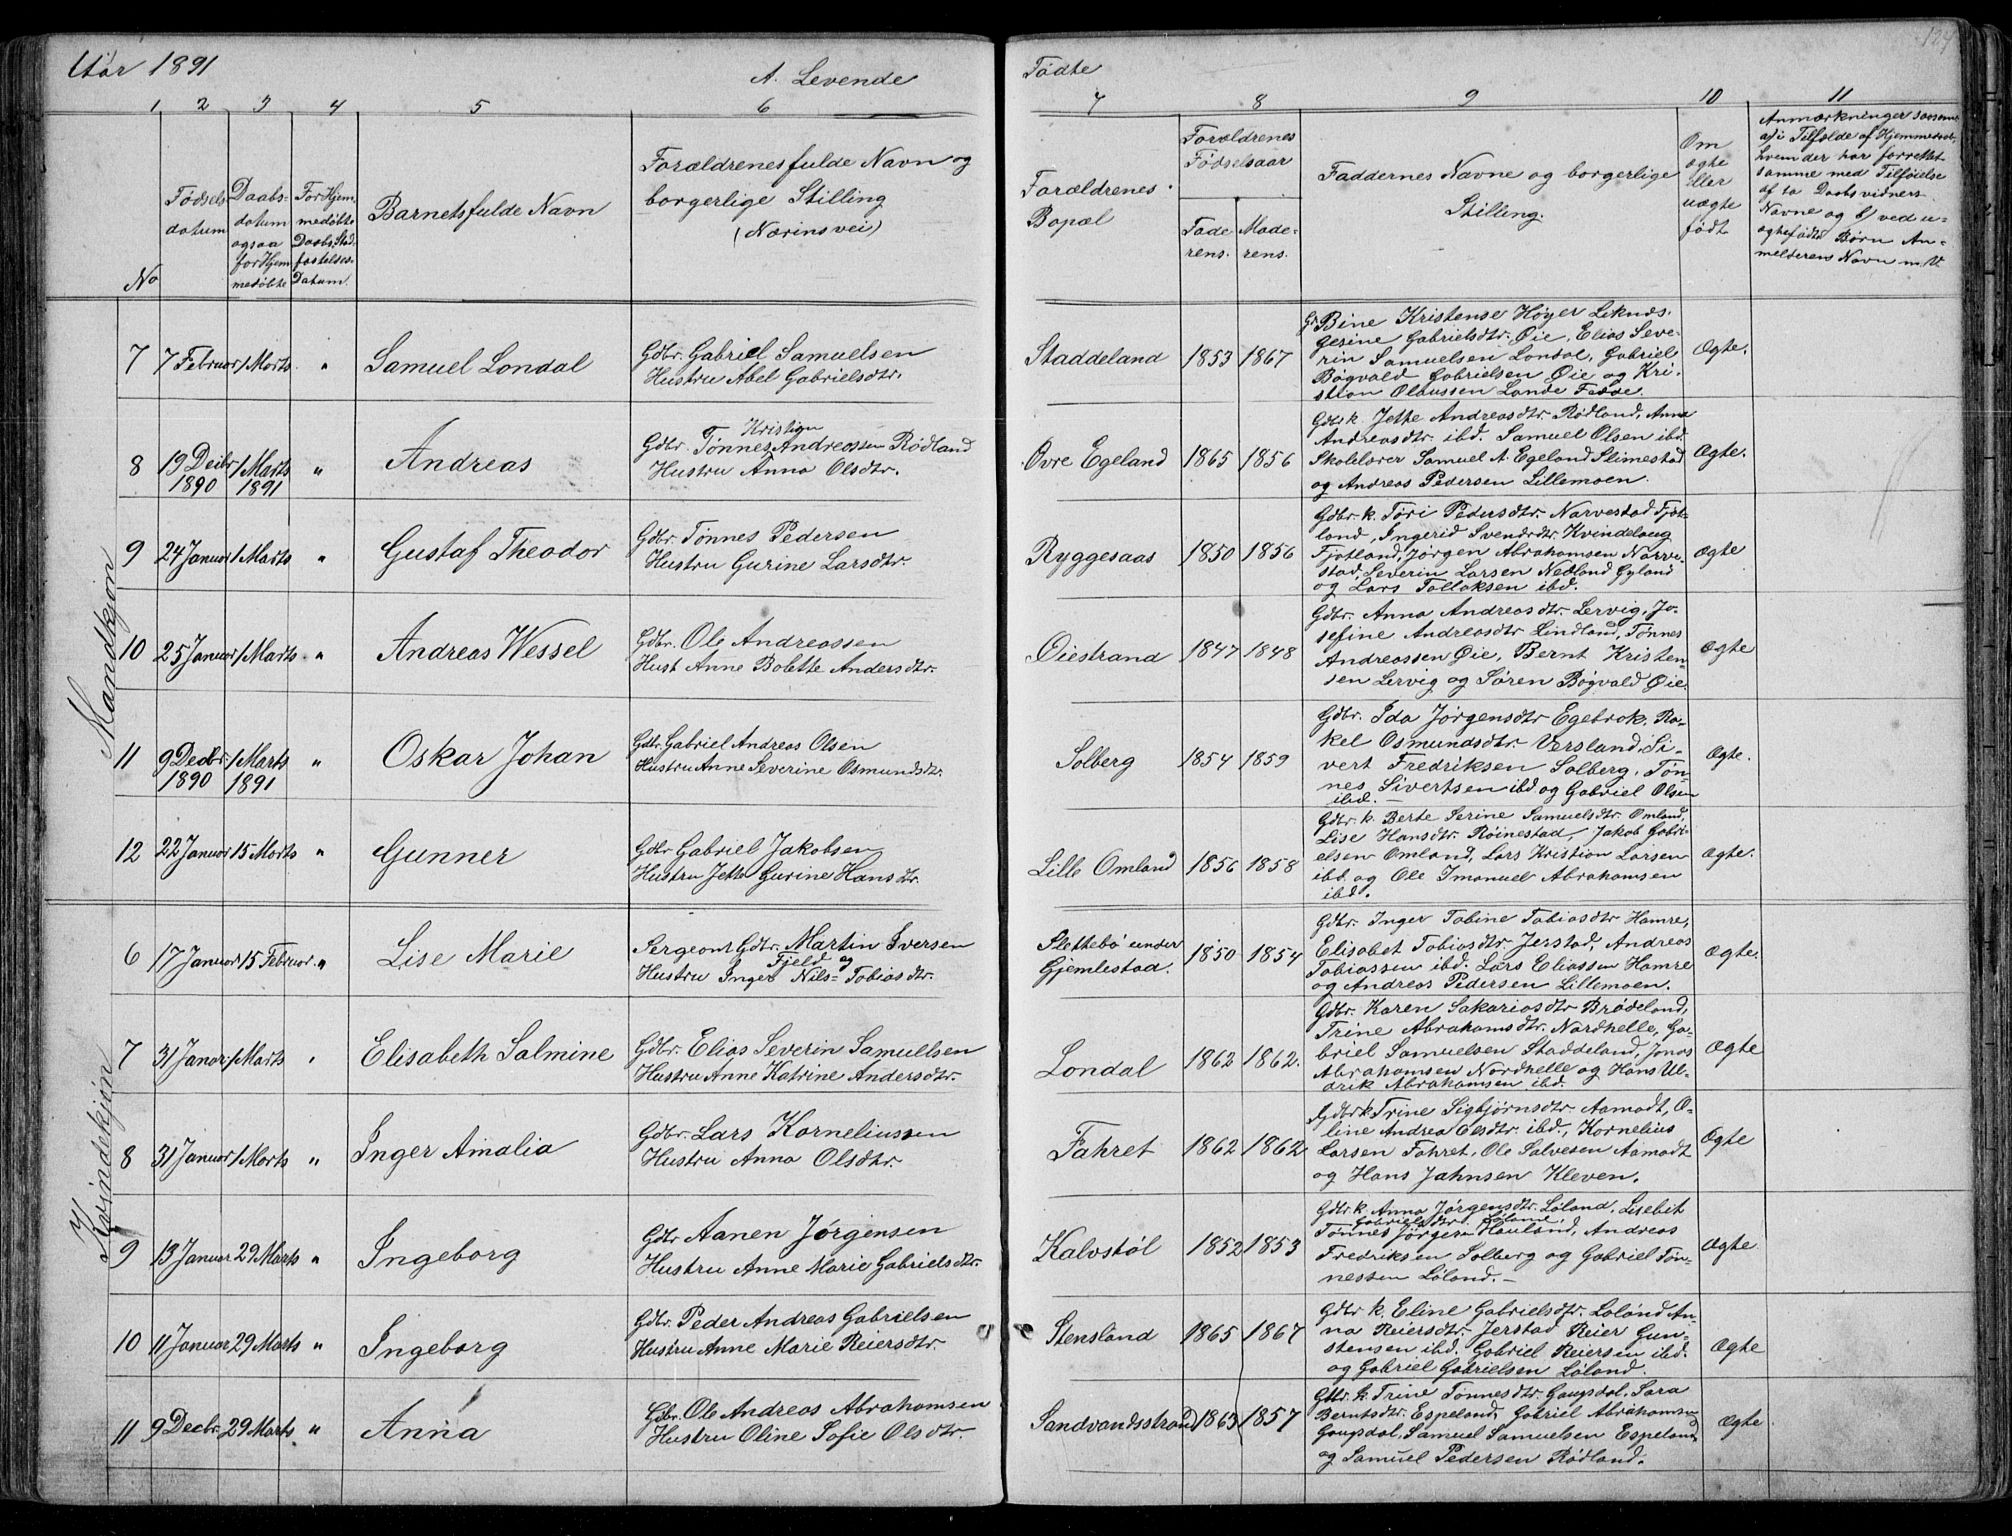 Aar 1891
A. Levende
Fødte
1 2 3 4 5 6
7 8 9 10 11
No
Fødsels
datum
Daabs-
datum
ogsaa
for Hjem
medøbte
For Hjem
medøbte
Daabs Stad
fæstelses
Datum.
Barnets fulde Navn
Forældrenes fulde Navn og
borgerlige Stilling
(Næringsvei)
Forældrenes
Bopæl
Forældrenes
Fødselsaar
Fade
rens.
Mode-
rens.
Faddernes Navne og borgerlige
Stilling.
Om
ægte
eller
uægte
født
Anmærkninger saasom
a) i Tilfælde af Hjemmedaab,
hvem der har forrettet
samme med Tilføielse
af to Daabsvidners
Navne og b) ved u-
ægtefødte Børn An-
melderens Navn m. V.
Mandkjøn
7 7 Februar 1 Marts " Samuel Londal
Gdbr. Gabriel Samuelsen
Hustru Abel Gabrielsdtr.
Staddeland 1853 1867
Gd. Bine Kristense Høyer Leknes.
Gesine Gabrielsdtr. Øie, Elias Seve-
rin Samuelsen Londal, Gabriel
Bøgvald Gabrielsen Øie og Kri-
stian Olaussen Lande Fedde.
Ægte.
8 19 Decbr 1890 1 Marts 1891 " Andreas
Gdbr. Tønnes Kristian Andreassen Rødland
Hustru Anna Olsdtr.
Øvre Egeland 1865 1856
Gdbr k. Jethe Andreasdtr. Rødland, Anna
Andreasdtr. ibd. Samuel Olsen ibd.
Skolelærer Samuel A. Egeland Slimestad
og Andreas Pedersen Lillemoen.
Ægte.
9 24 Januar 1 Marts " Gustaf Theodor
Gdbr. Tønnes Pedersen
Hustru Gurine Larsdtr.
Ryggesaas 1850 1856
Gdbr. k. Tøri Pedersdtr. Narvestad Fjot-
land, Ingerid Svendsdtr. Kvindelaug
Fjotland, Jørgen Abrahamsen Narve-
stad, Severin Larsen Nedland Gyland
og Lars Tollaksen ibd.
Ægte
10 25 Januar 1 Marts " Andreas Wessel
Gdbr. Ole Andreassen
Hust Anne Bolette Andersdtr.
Øiestrand 1847 1848
Gdbr. Anna Andreasdtr. Lervig, Jo-
sefine Andreasdtr Lindland, Tønnes
Andreassen Øie, Bernt Kristen-
sen Lervig og Søren Bøgvald Øie.
Ægte
11 9 Decbr 1890 1 Marts 1891 " Oskar Johan
Gdbr. Gabriel Andreas Olsen
Hustru Anne Severine Osmundsdtr.
Solberg 1854 1859
Gdbr. Ida Jørgensdtr Egebrok. Ra-
kel Osmundsdtr. Versland, Si-
vert Fredriksen Solberg, Tøn-
nes Sivertsen ibd og Gabriel Olsen
ibd. —
Ægte.
12 22 Januar 15 Marts " Gunner
Gdbr Gabriel Jakobsen
Hustru Jette Gurine Hansdtr.
Lille Omland 1856 1858
Gdbr. k. Berte Serine Samuelsdtr. Omland,
Lise Hansdtr. Røinestad, Jakob Gabri-
elsen Omland, Lars Kristian Larsen
ibd. og Ole Imanuel Abrahamsen
ibd.
Ægte.
Kvindekjøn
6 17 Januar 15 Februar " Lise Marie
Sergeant Gdbr. Martin Iversen
Fjeld og
Hustru Inger Nils= Tobiasdtr.
Slettebø under
Gjemlestad. 1850 1854
Gdbr. Inger Tobine Tobiasdtr Hamre,
Elisabet Tobiasdtr. Jerstad, Andreas
Tobiassen ibd. Lars Eliassen Hamre
og Andreas Pedersen Lillemoen.
Ægte.
7 31 Januar 1 Marts " Elisabeth Salmine
Gdbr. Elias Severin Samuelsen
Hustru Anne Katrine Andersdtr.
Londal 1862 1862.
Gdbr. Karen Sakariasdtr Brødeland,
Trine Abrahamsdtr. Nordhelle, Ga-
briel Samuelsen Staddeland, Jonas
Abrahamsen Nordhelle og Hans Ul-
drik Abrahamsen ibd.
Ægte
8 31 Januar 1 Marts " Inger Amalia
Gdbr. Lars Korneliussen
Hustru Anna Olsdtr.
Fahret 1862 1862
Gdbr k Trine Sigbjørnsdtr. Aamodt, O-
line Andrea Olsdtr. ibd., Kornelius
Larsen Fahret, Ole Salvesen Aamodt
og Hans Jahnsen Kleven.
Ægte
9 13 Januar 29 Marts " Ingeborg
Gdbr Aanen Jørgensen
Hustru Anne Marie Gabrielsdtr.
Kalvstøl 1852 1853
Gdbr. k. Anna Jørgensdtr. Løland, Lisebet
Gabrielsdtr. Løland,
Tønnes Jørgensen Houland, Andreas
Fredriksen Solberg og Gabriel Tøn-
nessen Løland. —
Ægte
10 11 Januar 29 Marts " Ingeborg
Gdbr. Peder Andreas Gabrielsen
Hustru Anne Marie Reiersdtr.
Stensland 1865 1867
Gdbr k. Eline Gabrielsdtr. Løland An-
na Reiersdtr. Jerstad Reier Gun-
stensen ibd. Gabriel Reiersen ibd.
og Gabriel Gabrielsen Løland.
Ægte
11 9 Decbr. 29 Marts " Anna
Gdbr. Ole Andreas Abrahamsen
Hustru Oline Sofie Olsdtr.
Sandvandsstrand 1863 1857
Gdbr. k. Trine Tønnesdtr. Gaupdal, Sara
Berntsdtr. Espeland, Gabriel Abrahamsen
Gaupdal, Samuel Samuelsen Espeland
og Samuel Pedersen Rødland.
Ægte